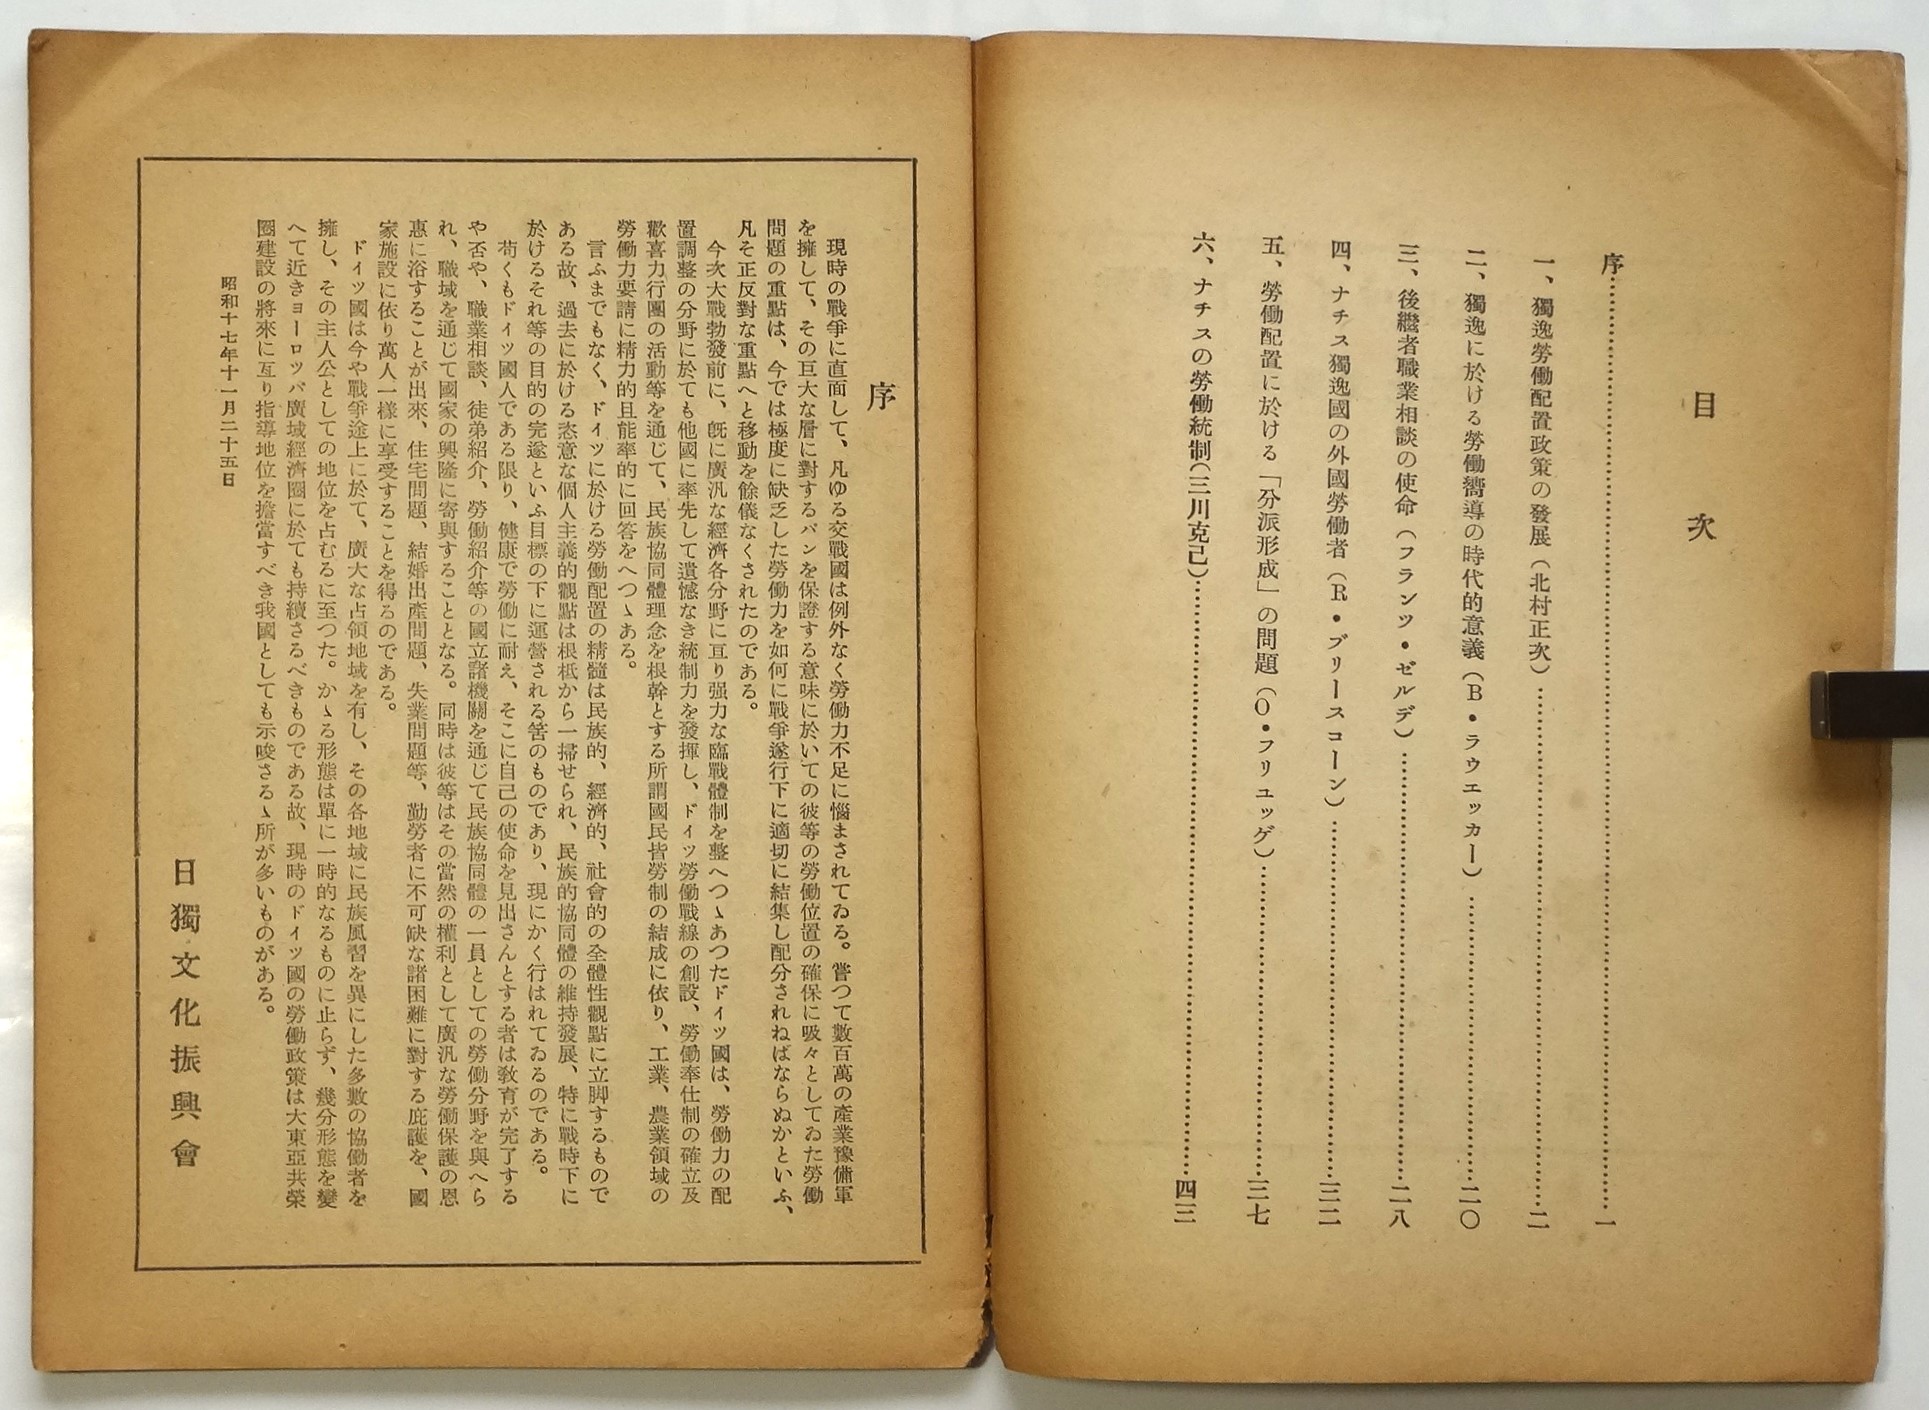 目次
序……一
一、獨逸勞働配置政策の發展（北村正次）……二
二、獨逸に於ける勞働嚮導の時代的意義（B・ラウエッカー）……二〇
三、後繼者職業相談の使命（フランツ・ゼルデ）……二八
四、ナチス獨逸國の外國勞働者（R・ブリースコーン）……三二
五、勞働配置に於ける「分派形成」の問題（O・フリュッゲ）……三七
六、ナチスの勞働統制（三川克己）……四三
序
現時の戰爭に直面して、凡ゆる交戰國は例外なく勞働力不足に惱まされてゐる。嘗つて數百萬の產業豫備軍
を擁して、その巨大な層に對するパンを保證する意味に於いての彼等の勞働位置の確保に吸々としてゐた勞働
問題の重點は、今では極度に缺乏した勞働力を如何に戰爭遂行下に適切に結集し配分されねばならぬかといふ、
凡そ正反對な重點へと移動を餘儀なくされたのである。
今次大戰勃發前に、旣に廣汎な經濟各分野に亘り强力な臨戰體制を整へつゝあつたドイツ國は、勞働力の配
置調整の分野に於ても他國に率先して遺憾なき統制力を發揮し、ドイツ勞働戰線の創設、勞働奉仕制の確立及
歡喜力行團の活動等を通じて、民族協同體理念を根幹とする所謂國民皆勞制の結成に依り、工業、農業領域の
勞働力要請に精力的且能率的に回答をへつゝある。
言ふまでもなく、ドイツに於ける勞働配置の精髓は民族的、經濟的、社會的の全體性觀點に立脚するもので
ある故、過去に於ける恣意な個人主義的觀點は根柢から一掃せられ、民族的協同體の維持發展、特に戰時下に
於けるそれ等の目的の完遂といふ目標の下に運營される筈のものであり、現にかく行はれてゐるのである。
苟くもドイツ國人である限り、健康で勞働に耐え、そこに自己の使命を見出さんとする者は敎育が完了する
や否や、職業相談、徒弟紹介、勞働紹介等の國立諸機關を通じて民族協同體の一員としての勞働分野を與へら
れ、職域を通じて國家の興隆に寄與することとなる。同時は彼等はその當然の權利として廣汎な勞働保護の恩
惠に浴することが出來、住宅問題、結婚出產問題、失業問題等、勤勞者に不可缺な諸困難に對する庇護を、國
家施設に依り萬人一樣に享受することを得るのである。
ドイツ國は今や戰爭途上に於て、廣大な占領地域を有し、その各地域に民族風習を異にした多數の協働者を
擁し、その主人公としての地位を占むるに至つた。かゝる形態は單に一時的なるものに止らず、幾分形態を變
へて近きヨーロッパ廣域經濟圈に於ても持續さるべきものである故、現時のドイツ國の勞働政策は大東亞共榮
圈建設の將來に亙り指導地位を擔當すべき我國としても示唆さるゝ所が多いものがある。
昭和十七年十一月二十五日
日獨文化振興會